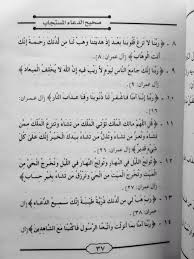 صحيح الدعاء المستجاب
٨ - ﴿ رَبَّنَا لَا تُزِغْ قُلُوبَنَا بَعْدَ إِذْ هَدَيْتَنَا وَهَبْ لَنَا مِن لَّدُنكَ رَحْمَةً إِنَّكَ
أَنتَ الْوَهَّابُ ﴾ [آل عمران: ٨].
٩ - ﴿ رَبَّنَا إِنَّكَ جَامِعُ النَّاسِ لِيَوْمٍ لَّا رَيْبَ فِيهِ إِنَّ اللَّهَ لَا يُخْلِفُ الْمِيعَادَ ﴾
[آل عمران: ٩].
مَالِكَ الْمُلْكِ تُؤْتِي الْمُلْكَ مَن تَشَاءُ وَتَنزِعُ الْمُلْكَ مِمَّن
تَشَاءُ وَتُعِزُّ مَن تَشَاءُ وَتُذِلُّ مَن تَشَاءُ بِيَدِكَ الْخَيْرُ إِنَّكَ عَلَى كُلِّ
١٢ - تُولِجُ اللَّيْلَ فِي النَّهَارِ وَتُولِجُ النَّهَارَ فِي اللَّيْلِ وَتُخْرِجُ الْحَيَّ مِنَ
الْمَيِّتِ وَتُخْرِجُ الْمَيِّتَ مِنَ الْحَيِّ وَتَرْزُقُ مَن تَشَاءُ بِغَيْرِ حِسَابٍ ﴾
١٣ - هَبْ لِي مِن لَّدُنكَ ذُرِّيَّةً طَيِّبَةً إِنَّكَ سَمِيعُ الدُّعَاءِ ﴾ [آل
١٤ - ﴿ رَبَّنَا آمَنَّا بِمَا أَنزَلْتَ وَاتَّبَعْنَا الرَّسُولَ فَاكْتُبْنَا مَعَ الشَّاهِدِينَ ﴾ [آل
٣٧